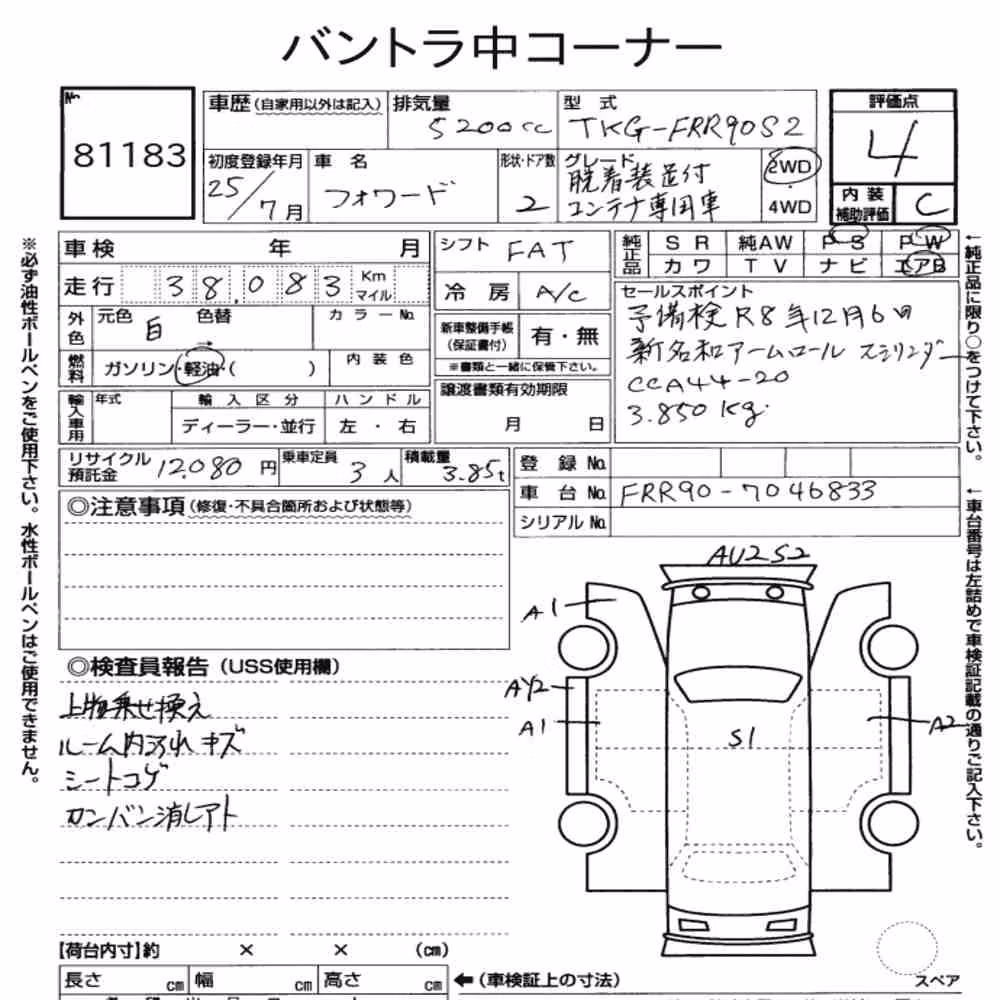 バントラ中コーナー
No.
81183
車歴 (自家用以外は記入)
排気量
5200cc
型式
TKG-FRR90S2
評価点
4
初度登録年月
25/7月
車名
フォワード
形状・ドア数
2
グレード
脱着装置付
コンテナ専用車
2WD
4WD
内装
補助評価
C
車検 年 月
シフト FAT
純正品
SR 純AW PS PW
カワ TV ナビ エアB
走行 38,083 Km
マイル
冷房 A/C
セールスポイント
予備検 R8年12月6日
新名和アームロール
CCA44-20
3.850kg
外色
元色 白 色替
→
カラーNo.
新車整備手帳
(保証書付)
有・無
※書類と一緒に保管下さい。
燃料
ガソリン・軽油・( )
内装色
譲渡書類有効期限
月 日
輸入車用
年式
輸入区分
ハンドル
ディーラー・並行
左・右
リサイクル
預託金
12.080 円
乗車定員
3人
積載量
3.85t
登録No.
車台No. FRR90-7046833
シリアルNo.
◎注意事項 (修復・不具合箇所および状態等)
◎検査員報告 (USS使用欄)
上物乗せ換え
ルーム内汚れ キズ
シートコゲ
カンバン消しアト
AU2S2
A1
AY2
A1
S1
A2
【荷台内寸】約 × × (cm)
長さ cm 幅 cm 高さ cm
←(車検証上の寸法)
スペア
※必ず油性ボールペンをご使用下さい。水性ボールペンはご使用できません。
←純正品に限り○をつけて下さい。
←車台番号は左詰めで車検証記載の通りご記入下さい。